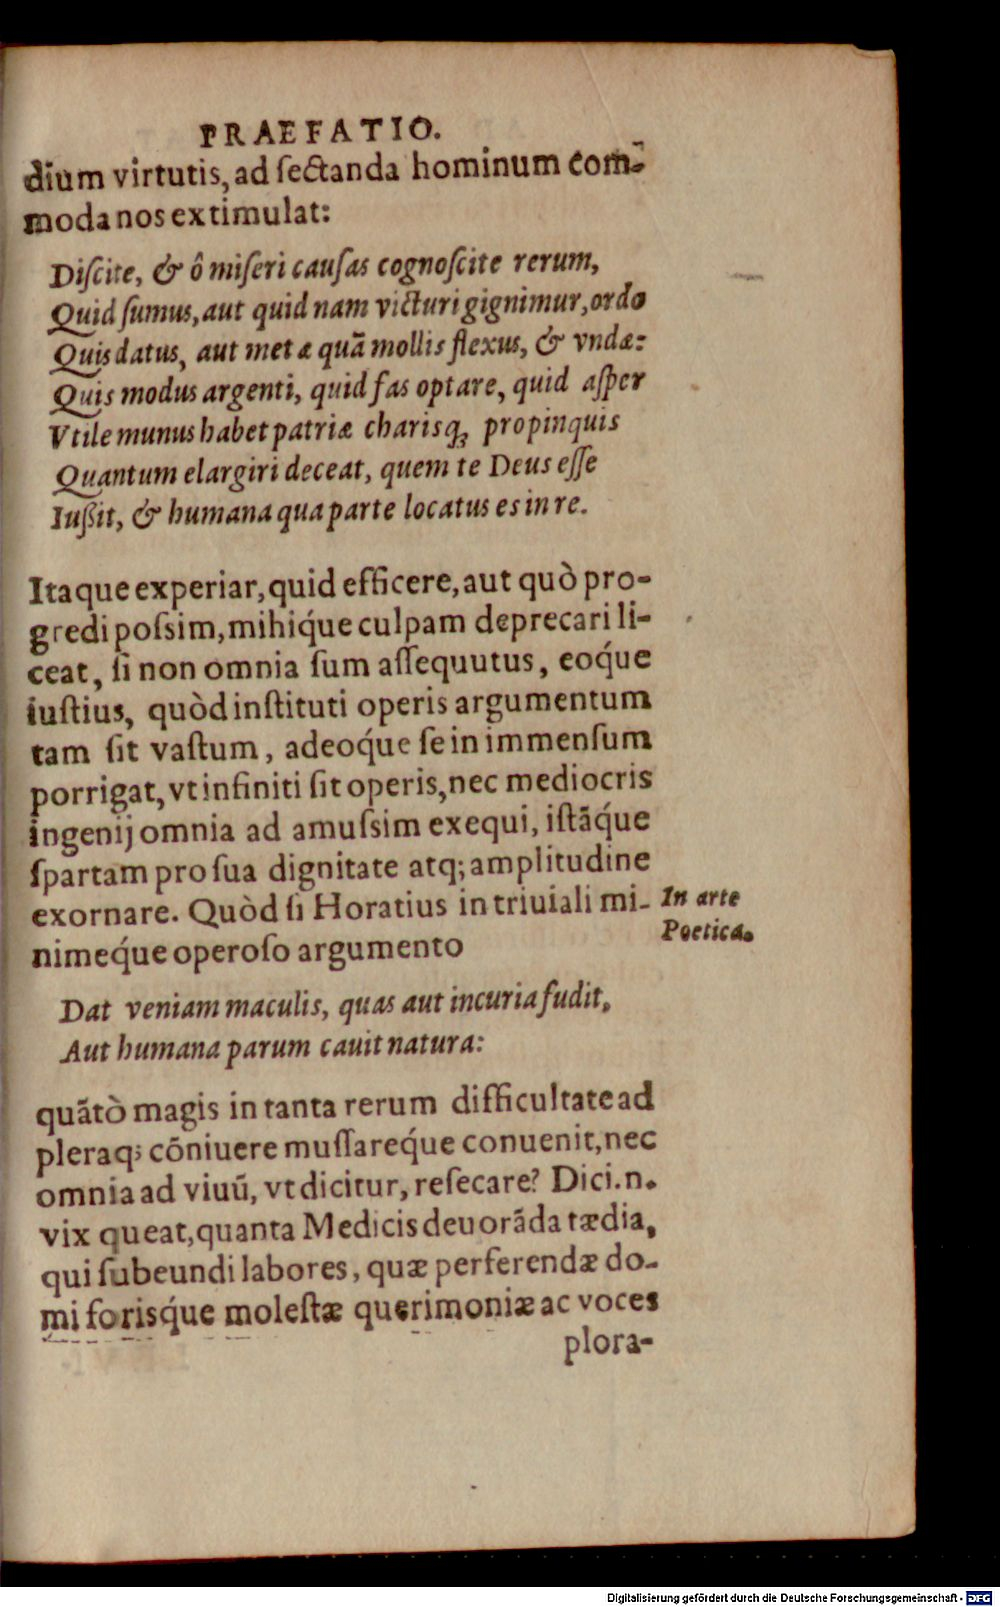 PRAEFATIO.
dium virtutis, ad ſectanda hominum com-
moda nos extimulat:
Diſcite, & ô miſeri cauſas cognoſcite rerum,
Quid ſumus, aut quid nam victuri gignimur, ordo
Quis datus, aut metæ quā mollis flexus, & vndæ:
Quis modus argenti, quid fas optare, quid aſper
Vtile munus habet patriæ charisq; propinquis
Quantum elargiri deceat, quem te Deus eſſe
Iußit, & humana qua parte locatus es in re.
Itaque experiar, quid efficere, aut quò pro-
gredi poſsim, mihiq́ue culpam deprecari li-
ceat, ſi non omnia ſum aſſequutus, eoq́ue
iuſtius, quòd inſtituti operis argumentum
tam ſit vaſtum, adeoq́ue ſe in immenſum
porrigat, vt infiniti ſit operis, nec mediocris
ingenij omnia ad amuſsim exequi, iſtāq́ue
ſpartam pro ſua dignitate atq; amplitudine
exornare. Quòd ſi Horatius in triuiali mi-
In arte
Poetica.
nimeq́ue operoſo argumento
Dat veniam maculis, quas aut incuria fudit,
Aut humana parum cauit natura:
quātò magis in tanta rerum difficultate ad
pleraq; cōniuere muſſareq́ue conuenit, nec
omnia ad viuū, vt dicitur, reſecare? Dici.n.
vix queat, quanta Medicis deuorāda tædia,
qui ſubeundi labores, quæ perferendæ do-
mi forisq́ue moleſtæ querimoniæ ac voces
plora-
Digitalisierung gefördert durch die Deutsche Forschungsgemeinschaft - DFG